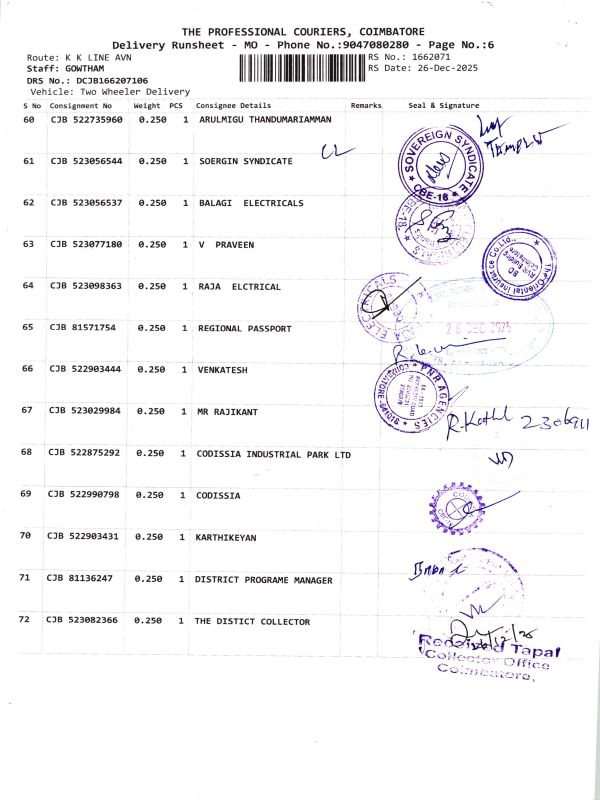 THE PROFESSIONAL COURIERS, COIMBATORE
Delivery Runsheet - MO - Phone No.:9047080280 - Page No.:6
Route: K K LINE AVN
RS No.: 1662071
Staff: GOWTHAM
RS Date: 26-Dec-2025
DRS No.: DCJB166207106
Vehicle: Two Wheeler Delivery
S No Consignment No Weight PCS Consignee Details Remarks Seal & Signature
60 CJB 522735960 0.250 1 ARULMIGU THANDUMARIAMMAN
61 CJB 523056544 0.250 1 SOERGIN SYNDICATE CL
SOVEREIGN SYNDICATE
CBE-18
62 CJB 523056537 0.250 1 BALAGI ELECTRICALS
63 CJB 523077180 0.250 1 V PRAVEEN
The Oriental Insurance Co.Ltd.,
BO
Coimbatore
64 CJB 523098363 0.250 1 RAJA ELCTRICAL
26 DEC 2025
65 CJB 81571754 0.250 1 REGIONAL PASSPORT
66 CJB 522903444 0.250 1 VENKATESH
PNR AGENCIES
67 CJB 523029984 0.250 1 MR RAJIKANT
2306911
68 CJB 522875292 0.250 1 CODISSIA INDUSTRIAL PARK LTD
69 CJB 522990798 0.250 1 CODISSIA
70 CJB 522903431 0.250 1 KARTHIKEYAN
71 CJB 81136247 0.250 1 DISTRICT PROGRAME MANAGER
72 CJB 523082366 0.250 1 THE DISTICT COLLECTOR
Received Tapal
Collector Office
Coimbatore,